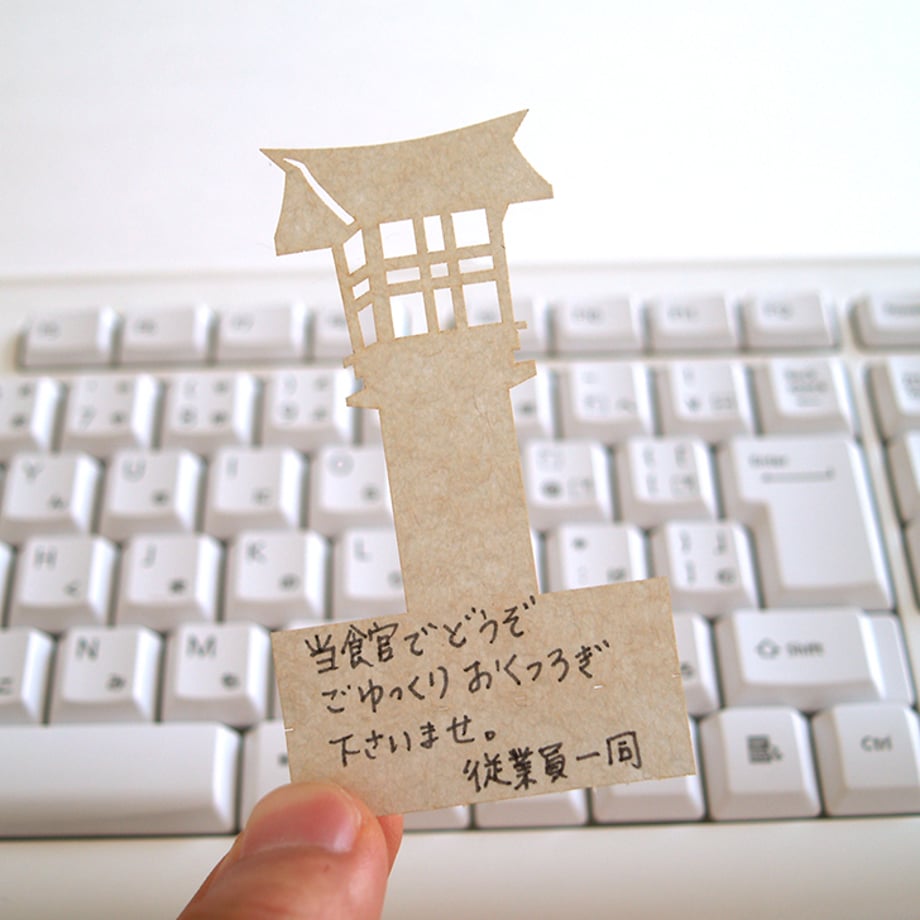 当食官でどうぞ
ごゆっくりおくつろぎ
下さいませ。
従業員一同
Y
U
I
O
H
J
K
L
N
M
Enter
Shift
Ctrl